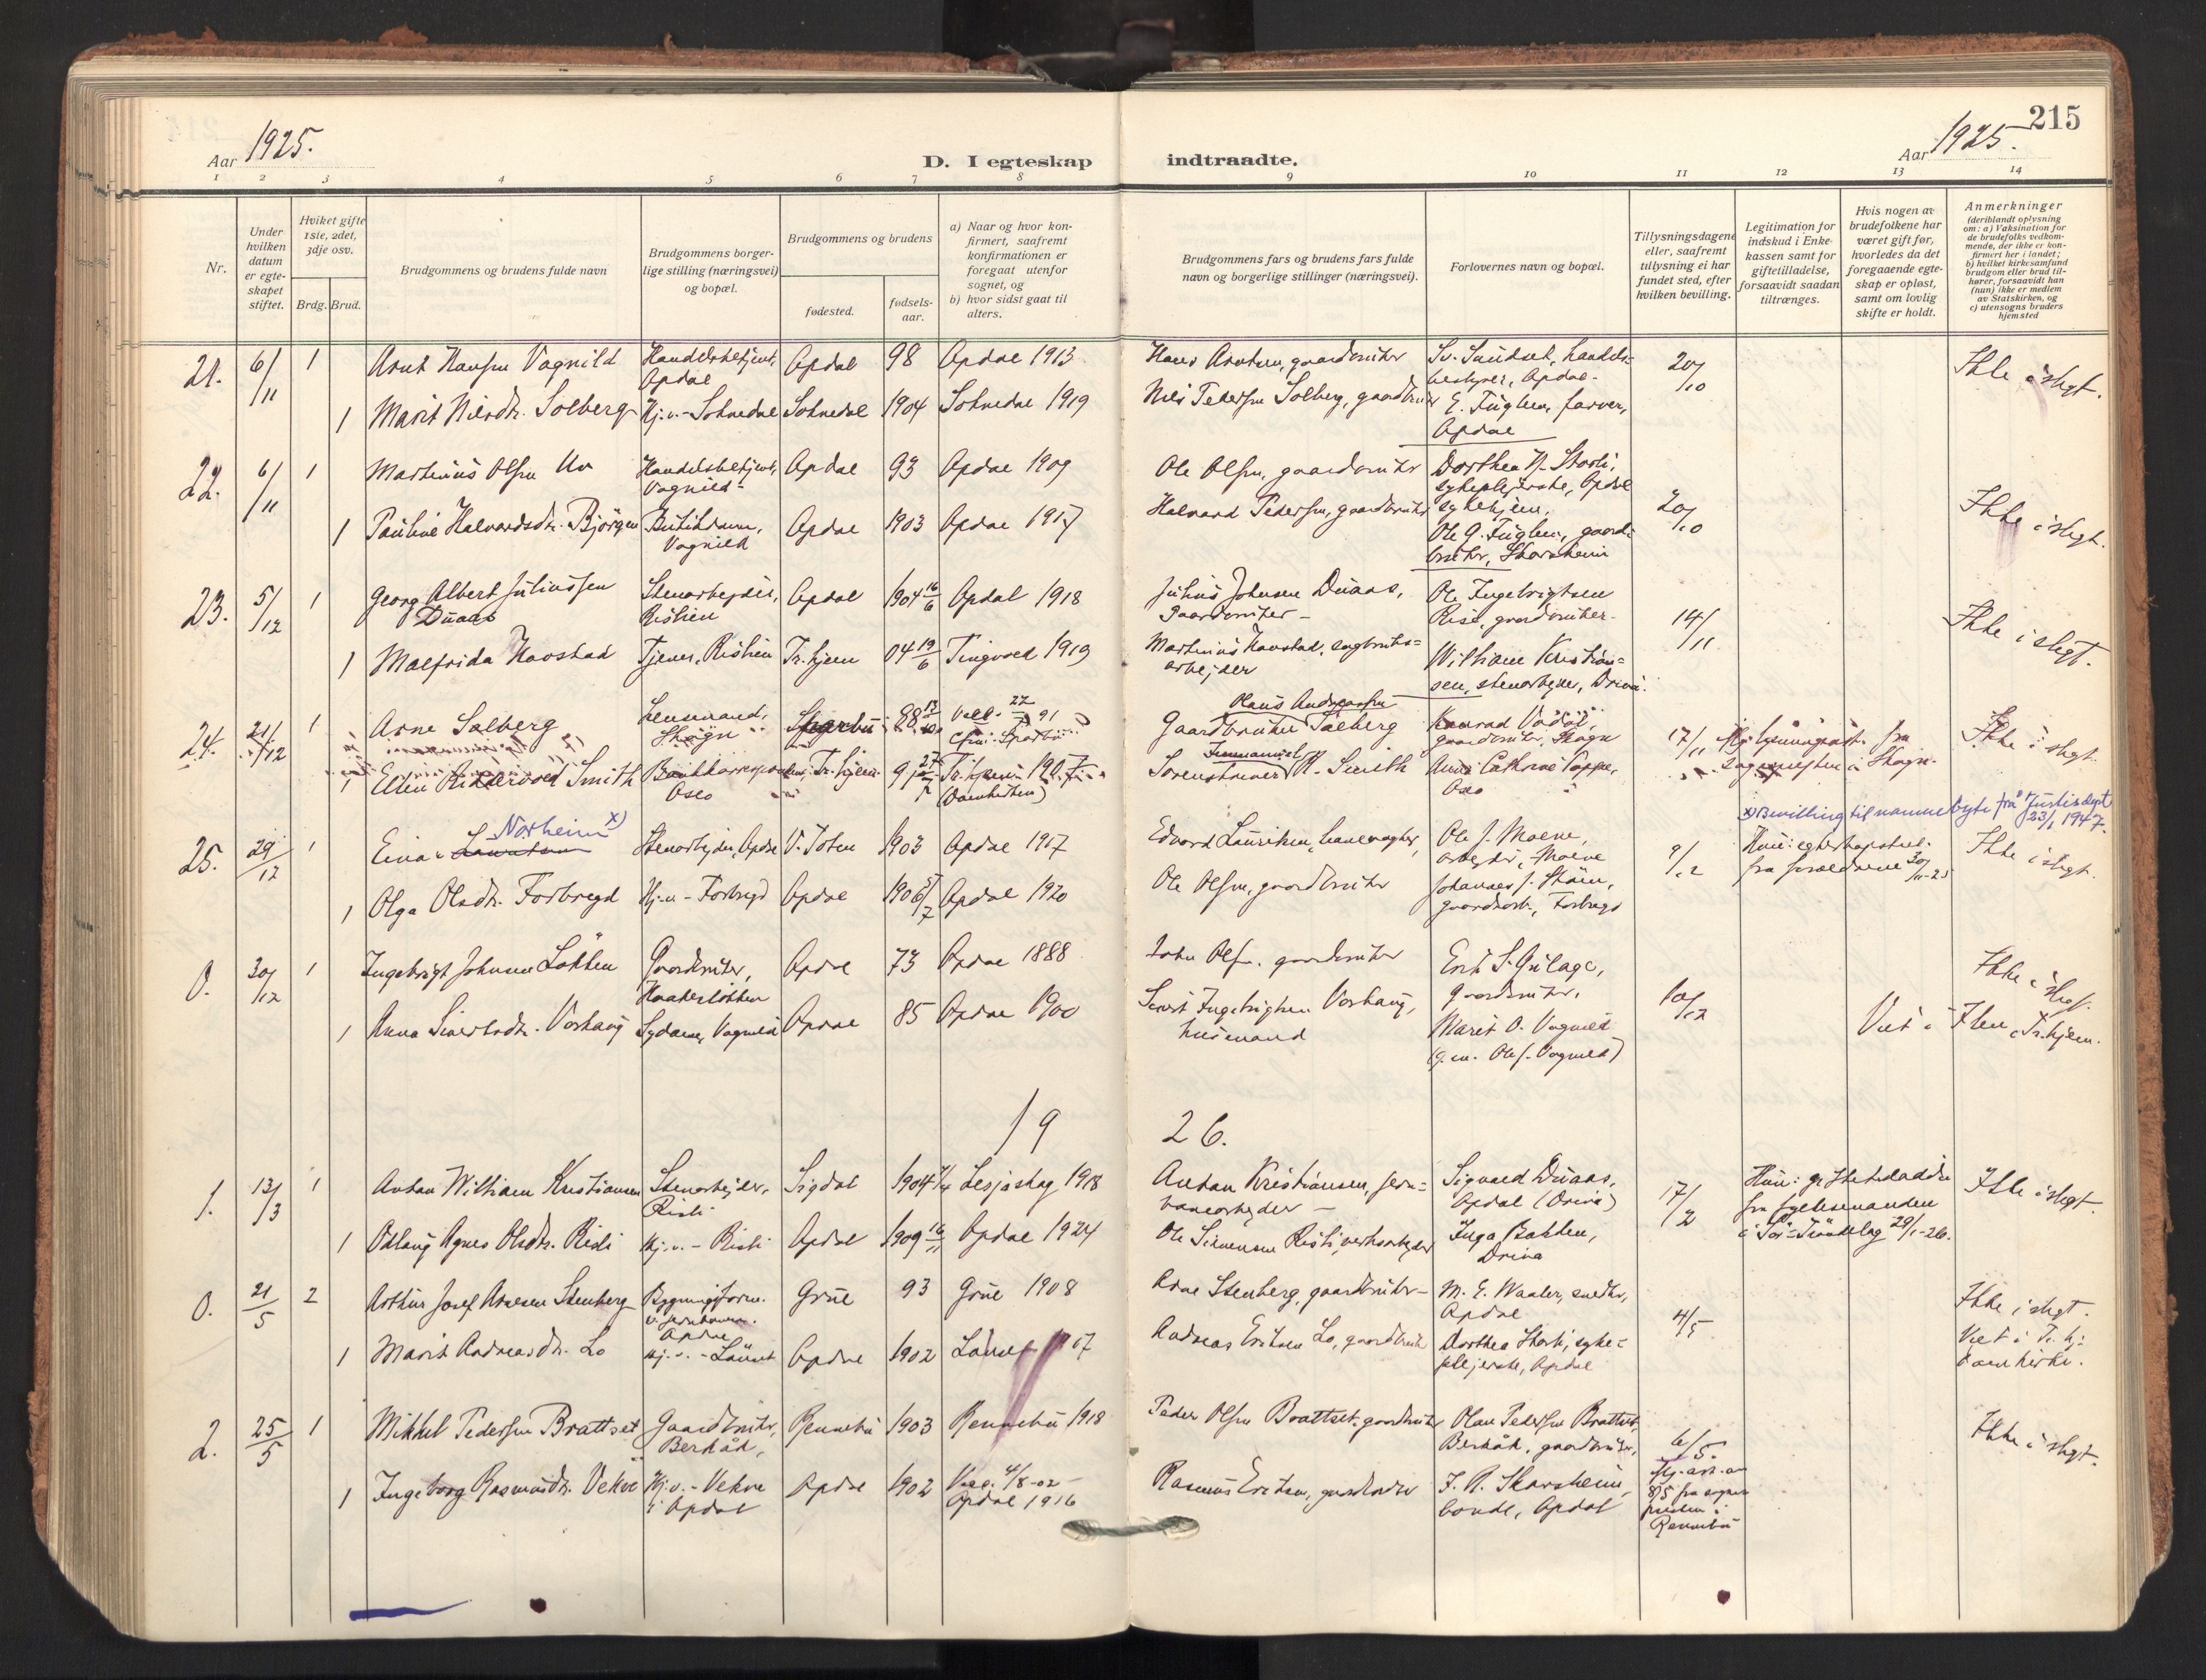 215
Aar 1925.
D. I egteskap indtraadte.
Aar 1925.
1 2 3 4 5 6 7 8 9 10 11 12 13 14
Nr.
Under hvilken datum er egte- skapet stiftet.
Hviket gifte 1ste, 2det, 3dje osv.
Brdg. Brud.
Brudgommens og brudens fulde navn
Brudgommens borger- lige stilling (næringsvei) og bopæl.
Brudgommens og brudens
fødested.
fødsels- aar.
a) Naar og hvor kon- firmert, saafremt konfirmationen er foregaat utenfor sognet, og
b) hvor sidst gaat til alters.
Brudgommens fars og brudens fars fulde navn og borgerlige stillinger (næringsvei).
Forlovernes navn og bopæl.
Tillysningsdagene eller, saafremt tillysning ei har fundet sted, efter hvilken bevilling.
Legitimation for indskud i Enke- kassen samt for giftetilladelse, forsaavidt saadan tiltrænges.
Hvis nogen av brudefolkene har været gift før, hvorledes da det foregaaende egte- skap er opløst, samt om lovlig skifte er holdt.
Anmerkninger
(deriblandt oplysning om: a) Vaksination for de brudefolks vedkom- mende, der ikke er kon- firmert her i landet; b) hvilket kirkesamfund brudgom eller brud til- hører, forsaavidt han (hun) ikke er medlem av Statskirken, og c) utensogns bruders hjemsted
21. 6/11 1 Arnt Hansen Vognild Handelsbetjent, Opdal Opdal 98 Opdal 1913 Hans Arntsen, gaardbruker Sv. Sundset, handels= bestyrer, Opdal. 20/10 Ikke i slegt.
1 Marit Nilsdtr. Solberg Hj.v. - Soknedal Soknedal 1904 Soknedal 1919 Nils Pedersen Solberg, gaardbruker E. Fuglem, farver, Opdal
22. 6/11 1 Martinus Olsen Uv Handelsbetjent, Vognild Opdal 93 Opdal 1909 Ole Olsen, gaardbruker Dorthea Storli, sykepleierske, Opdal sykehjem. 20/10 Ikke i slegt.
1 Pauline Halvardsdtr. Bjørgen Butikdame, Vognild Opdal 1903 Opdal 1917 Halvard Pedersen, gaardbruker Ole G. Fuglem, gaard- bruker, Skarsheim
23. 5/12 1 Georg Albert Juliussen Duaas Stenarbejder, Rislien Opdal 1904 16/6 Opdal 1918 Julius Johnsen Duaas, Gaardbruker - Ole Ingebrigtsen Rise, gaardbruker. 14/11 Ikke i slegt.
1 Malfrida Havstad Tjener, Rislien Tr.hjem 04 19/6 Tingvold 1919 Martinus Havstad, sagbruks= arbejder William Kristian= sen, stenarbejder, Driva.
24. 21/12 1 Arne Salberg Lensmand, Skogn 88 Hans Andreassen Gaardbruker Salberg Konrad gaardbruker, Skogn 17/11 fra sognepresten i Skogn. Ikke i slegt.
1 Ellen Smith Oslo Tr.hjem (Domkirken) Immanuel Smith Anna Cathrine Poppe, Oslo
x) Bevilling til namnebyte frå Justisdept 23/1 1947.
25. 29/12 1 Einar Norheim x) Stenarbejder, Opdal V. Toten 1903 Opdal 1917 Edvard Lauritsen, banevogter, Ole J. Moene, arbejder, Moene 9/12 fra forældrene 30/11-25 Ikke i slegt.
1 Olga Olsdtr. Forbregd Hj.v. - Forbregd Opdal 1906 5/7 Opdal 1920 Ole Olsen, gaardbruker Johannes J. gaardsarb., Forbregd
0. 30/12 1 Ingebrigt Johnsen Løkken Gaardbruker, Opdal 73 Opdal 1888 John Olsen, gaardbruker Erik S. Gulage, gaardbruker, 10/12 Ikke i slegt.
1 Anna Sivertsdtr. Vorhaug Sydame, Vognild Opdal 85 Opdal 1900 Sivert Ingebrigtsen Vorhaug, husmand Marit O. Vognild (g.m. Ole J. Vognild) Viet i Ilen, Tr.hjem.
1926.
1. 13/3 1 Anton William Kristiansen Stenarbejder, Risli Sigdal 1904 Lesjaskog 1918 Anton Kristiansen, jern= banearbejder - Sigvald Duaas, Opdal (Driva) 17/2 fra fylkesmanden i Sør-Trøndelag 29/1-26. Ikke i slegt.
1 Odlaug Agnes Olsdtr. Risli Hj.v. - Risli Opdal 1909 16/11 Opdal 1924 Ole Simensen Risli, verksarbejder Inga Bakken, Driva
0. 21/5 2 Arthur Josef Arnesen Stenberg Bygningsform. v. jernbanen. Opdal Grue 93 Grue 1908 Arne Stenberg, gaardbruker - M. E. Waaler, snedker, Opdal 4/5 Ikke i slegt.
1 Marit Andreasdtr. Lo Hj.v. - Lønset Opdal 1902 Lønset 1917 Andreas Eriksen Lo, gaardbruker Dorthea Storli, syke= plejerske, Opdal Viet i Tr.hj. domkirke.
2. 25/5 1 Mikkel Pedersen Brattset Gaardbruker, Berkåk, Rennebu 1903 Rennebu 1918 Peder Olsen Brattset, gaardbruker Olav Pedersen Brattset, Berkåk, gaardbruker, 6/5. Ikke i slegt.
1 Ingeborg Rasmusdtr. Vekve Hj.v. - Vekve i Opdal Opdal 1902 Vacc. 4/8-02 - Opdal 1916 Rasmus Eriksen, gaardbruker I. R. Skarsheim, bonde, Opdal 8/5 fra sogne- presten i Rennebu